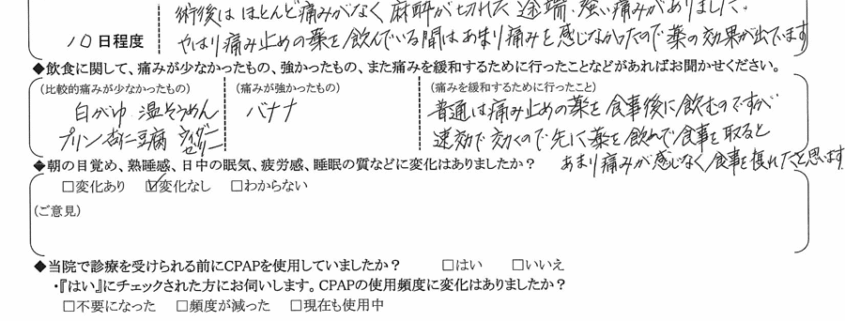 術後はほとんど痛みがなく麻酔が切れた途端、強い痛みがありました。
10日程度 やはり痛み止めの薬を飲んでいる間はあまり痛みを感じなかったので薬の効果が出ています
◆飲食に関して、痛みが少なかったもの、強かったもの、また痛みを緩和するために行ったことなどがあればお聞かせください。
(比較的痛みが少なかったもの) (痛みが強かったもの) (痛みを緩和するために行ったこと)
白がゆ 温そうめん バナナ 普通は痛み止めの薬を食事後に飲むのですが
プリン 杏仁豆腐 ウイダーゼリー 速効で効くので先に薬を飲んで食事を取ると
あまり痛みが感じなく食事を摂れたと思います
◆朝の目覚め、熟睡感、日中の眠気、疲労感、睡眠の質などに変化はありましたか?
□変化あり ☑変化なし □わからない
(ご意見)
◆当院で診療を受けられる前にCPAPを使用していましたか? □はい □いいえ
・『はい』にチェックされた方にお伺いします。CPAPの使用頻度に変化はありましたか?
□不要になった □頻度が減った □現在も使用中